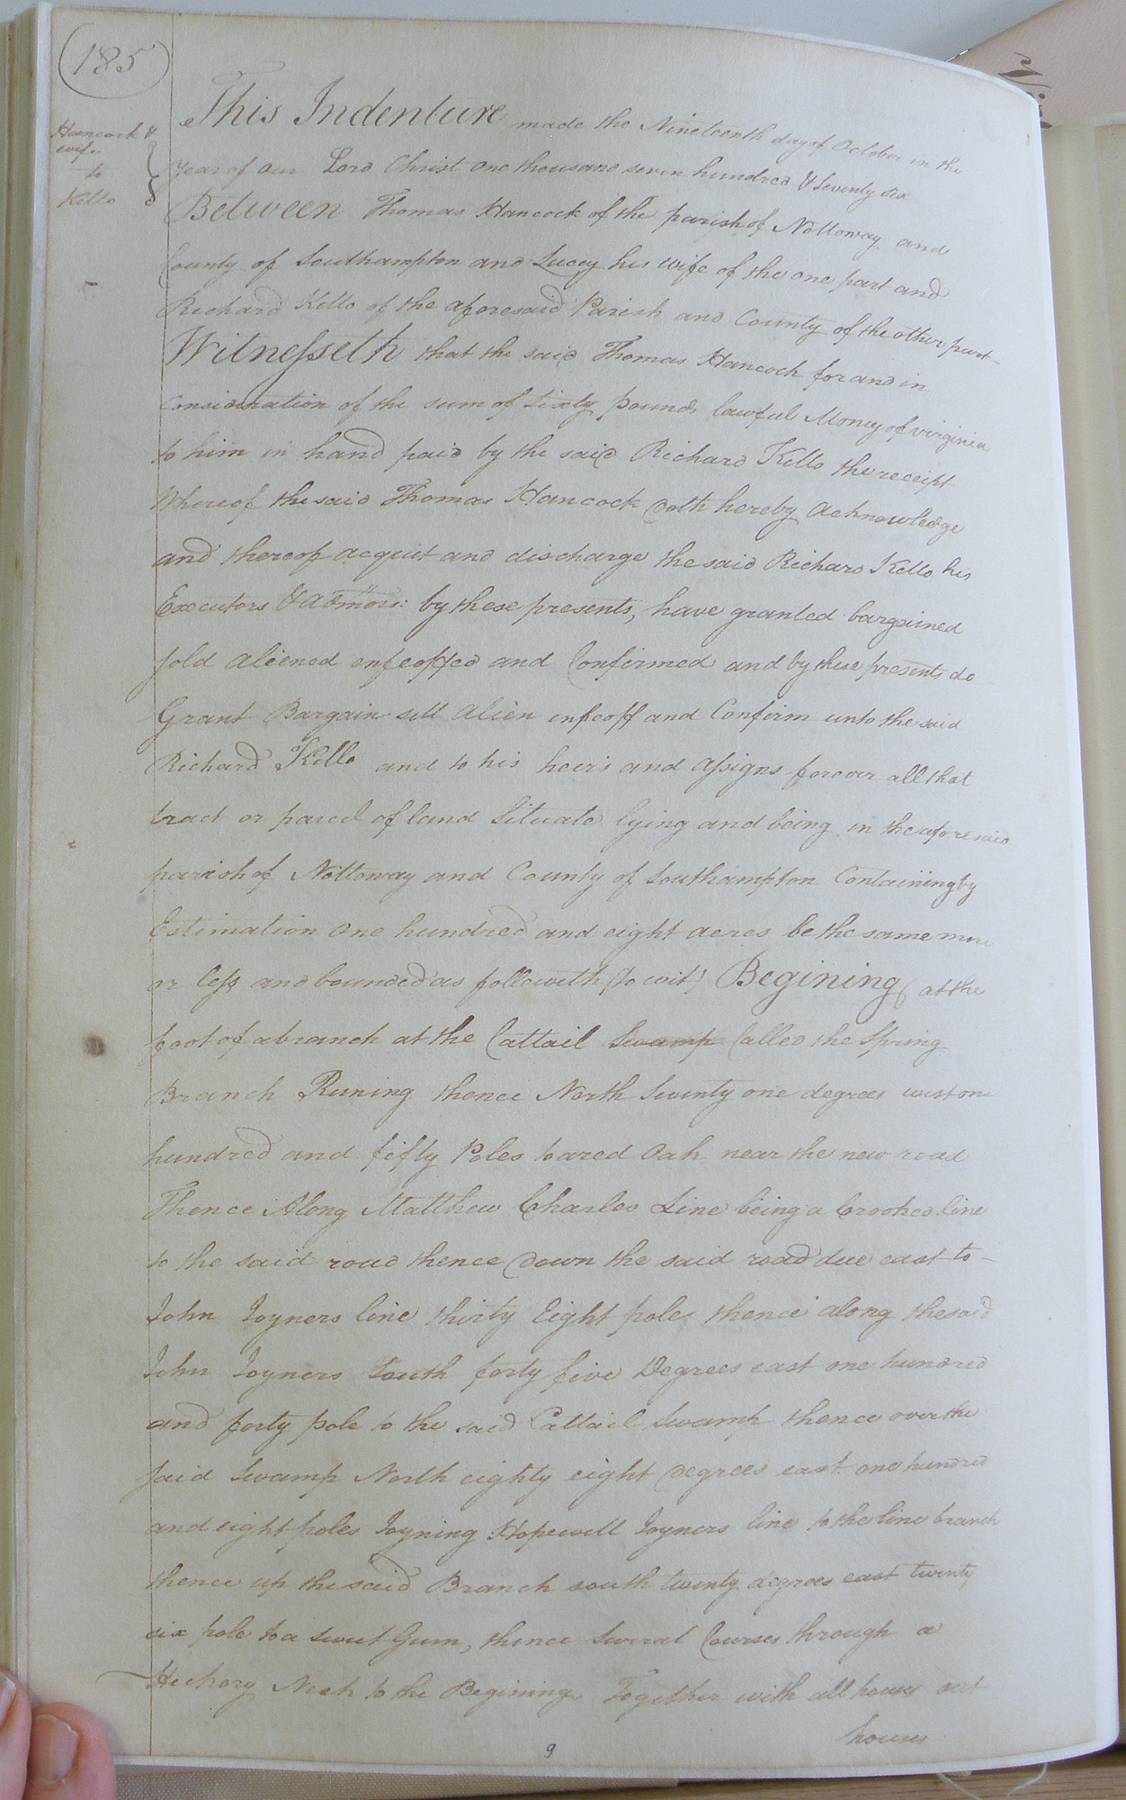 185
Hancock &
wife
to
Kello
This Indenture made the Nineteenth day of October in the
year of our Lord Christ One thousand seven hundred & Seventy six
Between Thomas Hancock of the parish of Nottoway and
County of Southampton and Lucey his wife of the one part and
Richard Kello of the aforesaid Parish and County of the other part
Witnesseth that the said Thomas Hancock for and in
Consideration of the sum of Sixty pounds lawful Money of Virginia
to him in hand paid by the said Richard Kello the receipt
Whereof the said Thomas Hancock doth hereby Acknowledge
and thereof acquit and discharge the said Richard Kello his
Executors & Admors: by these presents, have granted bargained
sold aliened enfeoffed and Confirmed and by these presents do
Grant Bargain sell alien enfeoff and Confirm unto the said
Richard Kello and to his heirs and assigns forever all that
tract or parcel of land Situate lying and being in the aforesaid
parish of Nottoway and County of Southampton Containing by
Estimation One hundred and eight acres be the same more
or less and bounded as followeth (to wit) Begining at the
foot of a branch at the Cattail Swamp Called the Spring
Branch Runing thence North Seventy one degrees west one
hundred and fifty Poles to a red Oak near the new road
Thence Along Matthew Charles Line being a Crooked line
to the said road thence down the said road due east to
John Joyners line thirty Eight poles thence along the said
John Joyners South forty five Degrees east one hundred
and forty pole to the said Cattail Swamp thence over the
said Swamp North eighty eight degrees east one hundred
and eight poles Joyning Hopewell Joyners line to the line branch
thence up the said Branch south twenty degrees east twenty
six pole to a sweet Gum, thence Several Courses through a
Hickory Neck to the Begining, Together with all houses out
houses
9